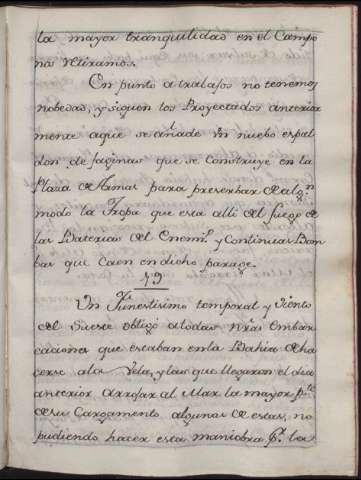 la mayor tranquilidad en el Campo
nos retiramos.
En punto a trabajos no tenemos
nobedad, y siguen los Proyectados anterior
mente aque se añade un nuebo espal
don de faginas que se construye en la
Plaza de Armas para preserbar de algn
modo la Tropa que esta alli del fuego de
las Baterias del Enemo. y continuas Bom
bas que caen en dicho parage.
19
Un Funestisimo temporal y Viento
del Sueste obligó a todas nras Embar
caciones que estaban en la Bahia de ha
cerse a la Vela, y las que llegaron el dia
anterior arrojar al Mar la mayor pte
de su Cargamento algunas de estas, no
pudiendo hacer esta maniobra pr. la